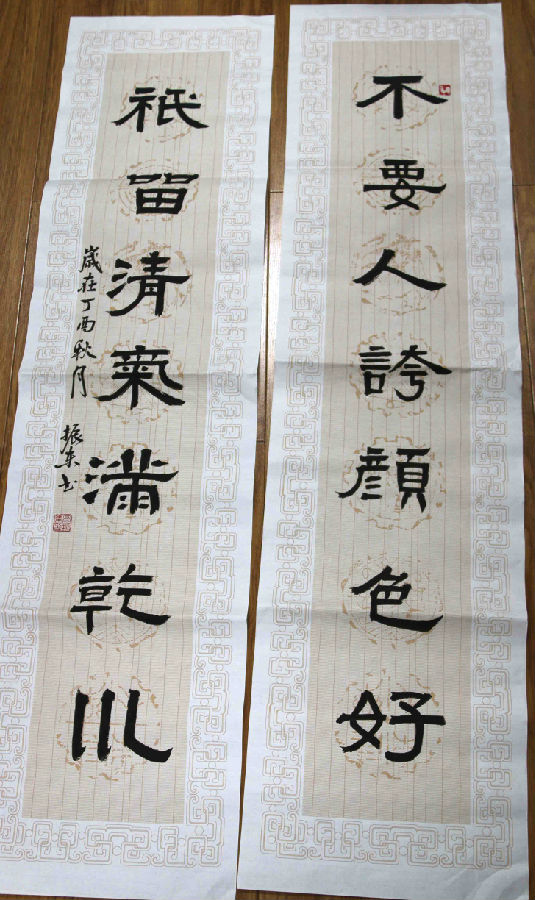 不要人誇顔色好
祇留清氣滿乾川
歲在丁酉秋月
振東书